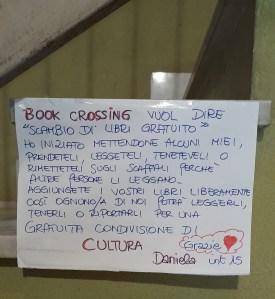 BOOK CROSSING VUOL DIRE
"SCAMBIO DI LIBRI GRATUITO"
HO INIZIATO METTENDONE ALCUNI MIEI,
PRENDETELI, LEGGETELI, TENETEVELI O
RIMETTETELI SUGLI SCAFFALI PERCHÈ
ALTRE PERSONE LI LEGGANO.
AGGIUNGETE I VOSTRI LIBRI LIBERAMENTE
COSÌ OGNUNO/A DI NOI POTRÀ LEGGERLI,
TENERLI O RIPORTARLI PER UNA
GRATUITA CONDIVISIONE DI
CULTURA
Grazie
Daniela int. 15